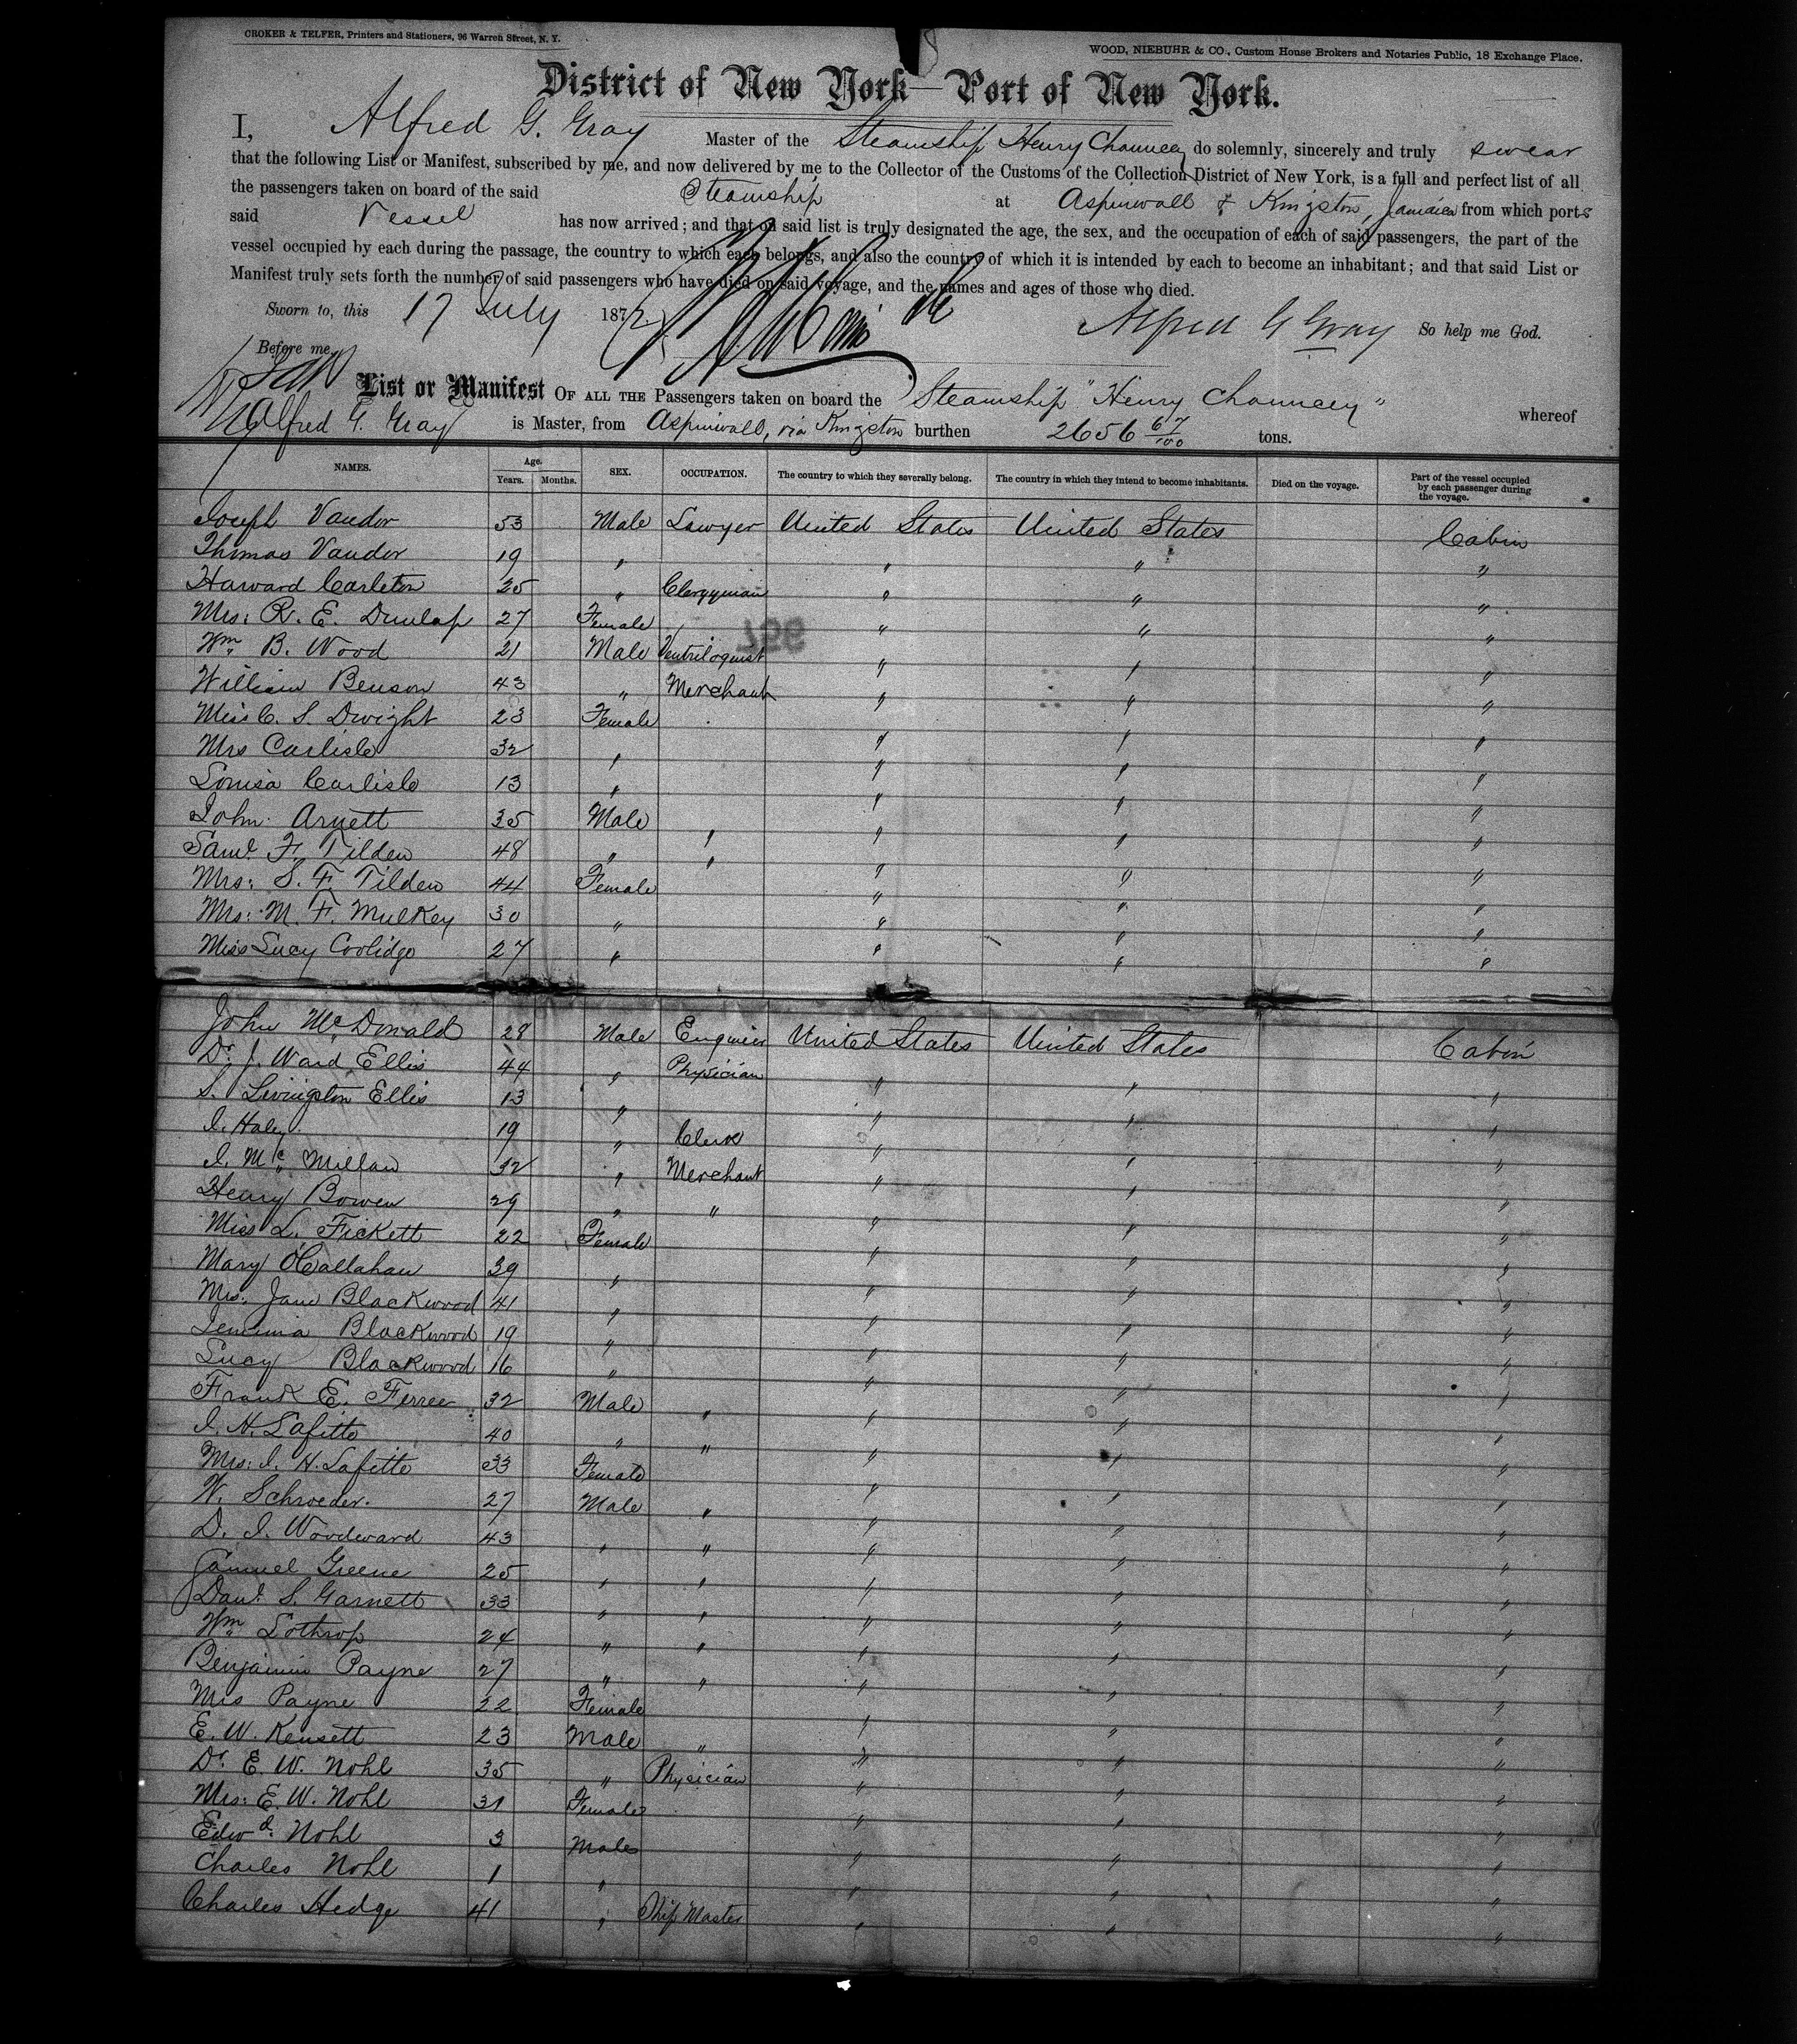 CROKER & TELFER, Printers and Stationers, 96 Warren Street, N. Y.
WOOD, NIEBUHR & CO., Custom House Brokers and Notaries Public, 18 Exchange Place.
District of New York—Port of New York.
I, Alfred G. Gray Master of the Steamship Henry Chauncey do solemnly, sincerely and truly swear
that the following List or Manifest, subscribed by me, and now delivered by me to the Collector of the Customs of the Collection District of New York, is a full and perfect list of all
the passengers taken on board of the said Steamship at Aspinwall & Kingston, Jamaica from which ports
said Vessel has now arrived; and that on said list is truly designated the age, the sex, and the occupation of each of said passengers, the part of the
vessel occupied by each during the passage, the country to which each belongs, and also the country of which it is intended by each to become an inhabitant; and that said List or
Manifest truly sets forth the number of said passengers who have died on said voyage, and the names and ages of those who died.
Sworn to, this 17 July 1872 Alfred G Gray So help me God.
Before me,
List or Manifest OF ALL THE Passengers taken on board the Steamship "Henry Chauncey" whereof
Alfred G. Gray is Master, from Aspinwall, via Kingston burthen 2656 67/100 tons.
NAMES. Age. Years. Months. SEX. OCCUPATION. The country to which they severally belong. The country in which they intend to become inhabitants. Died on the voyage. Part of the vessel occupied by each passenger during the voyage.
Joseph Vandor 53 Male Lawyer United States United States Cabin
Thomas Vandor 19 " " " "
Harvard Carleton 25 " Clergyman " " "
Mrs: R. E. Dunlap 27 Female " " "
Wm B. Wood 21 Male Ventriloquist " " "
William Benson 43 " Merchant " " "
Miss C. S. Dwight 23 Female " " "
Mrs Carlisle 32 " " " "
Louisa Carlisle 13 " " " "
John Arnett 35 Male " " " "
Saml F. Tilden 48 " " " " "
Mrs: S. F. Tilden 44 Female " " "
Mrs: M. F. Mulkey 30 " " " "
Miss Lucy Coolidge 27 " " " "
John McDonald 28 Male Engineer United States United States Cabin
Dr. J. Ward Ellis 44 " Physician " " "
S. Livingston Ellis 13 " " " "
I. Haley 19 " Clerk " " "
I. Mc Millan 32 " Merchant " " "
Henry Bowen 29 " " " " "
Miss L. Fickett 22 Female " " "
Mary O'Callahan 39 " " " "
Mrs. Jane Blackwood 41 " " " "
Jemima Blackwood 19 " " " "
Lucy Blackwood 16 " " " "
Frank E. Ferree 32 Male " " " "
I. H. Lafitte 40 " " " " "
Mrs: I. H. Lafitte 33 Female " " "
W. Schroeder 27 Male " " " "
D. I. Woodward 43 " " " " "
Samuel Greene 25 " " " " "
Danl. S. Garnett 33 " " " " "
Wm Lothrop 24 " " " " "
Benjamin Payne 27 " " " " "
Mrs Payne 22 Female " " "
E. W. Kensett 23 Male " " " "
Dr. E. W. Nohl 35 " Physician " " "
Mrs: E. W. Nohl 31 Female " " "
Edwd. Nohl 3 Male " " "
Charles Nohl 1 " " " "
Charles Hedge 41 " Ship Master " " "